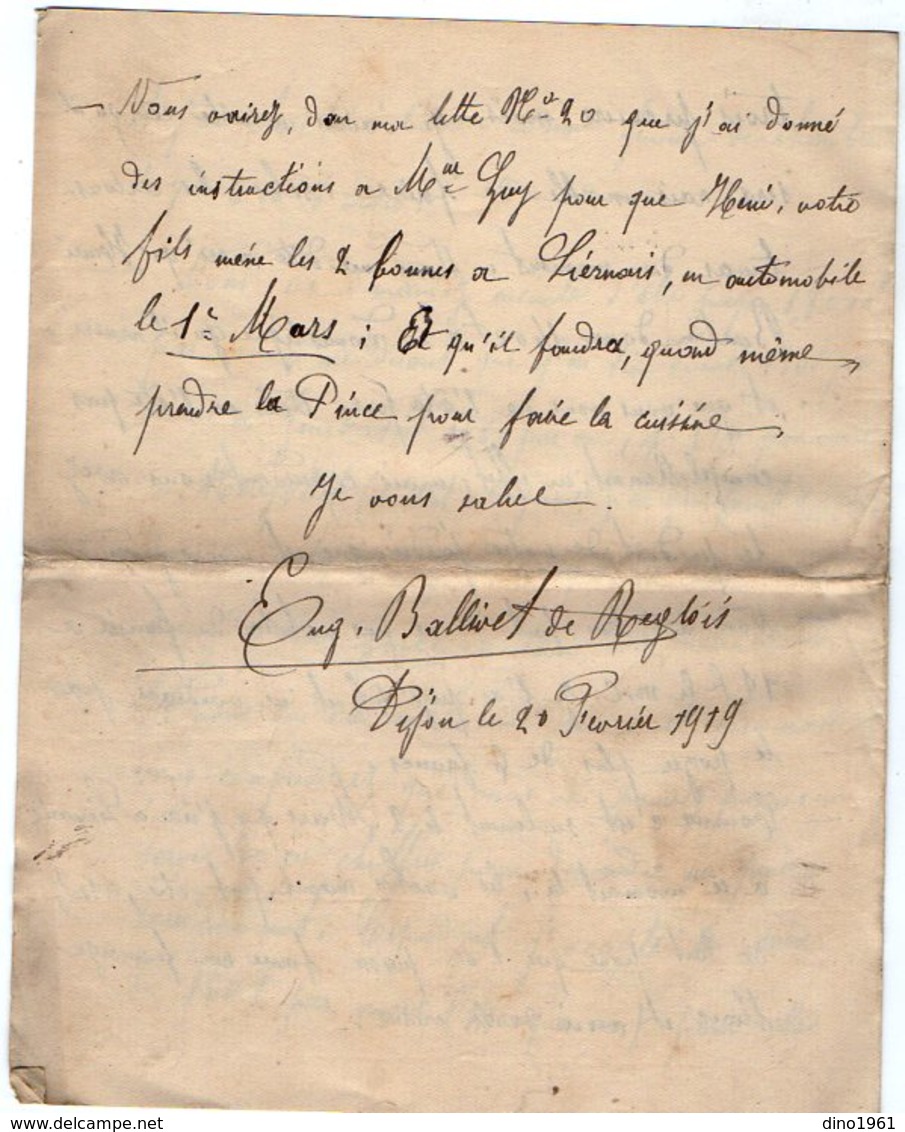 — Vous voirez, dan ma lette N° 20 que j'ai donné
des instructions a Mme Guy pour que Henri, votre
fils mène les 2 bonnes a Liernais, en automobile
le 1er Mars ; Et qu'il faudra, quand même
prendre la Pince pour faire la cuisine,
Je vous salue.
Eug. Ballivet de Reglois
Dijon le 20 Fevrier 1919
dino1961